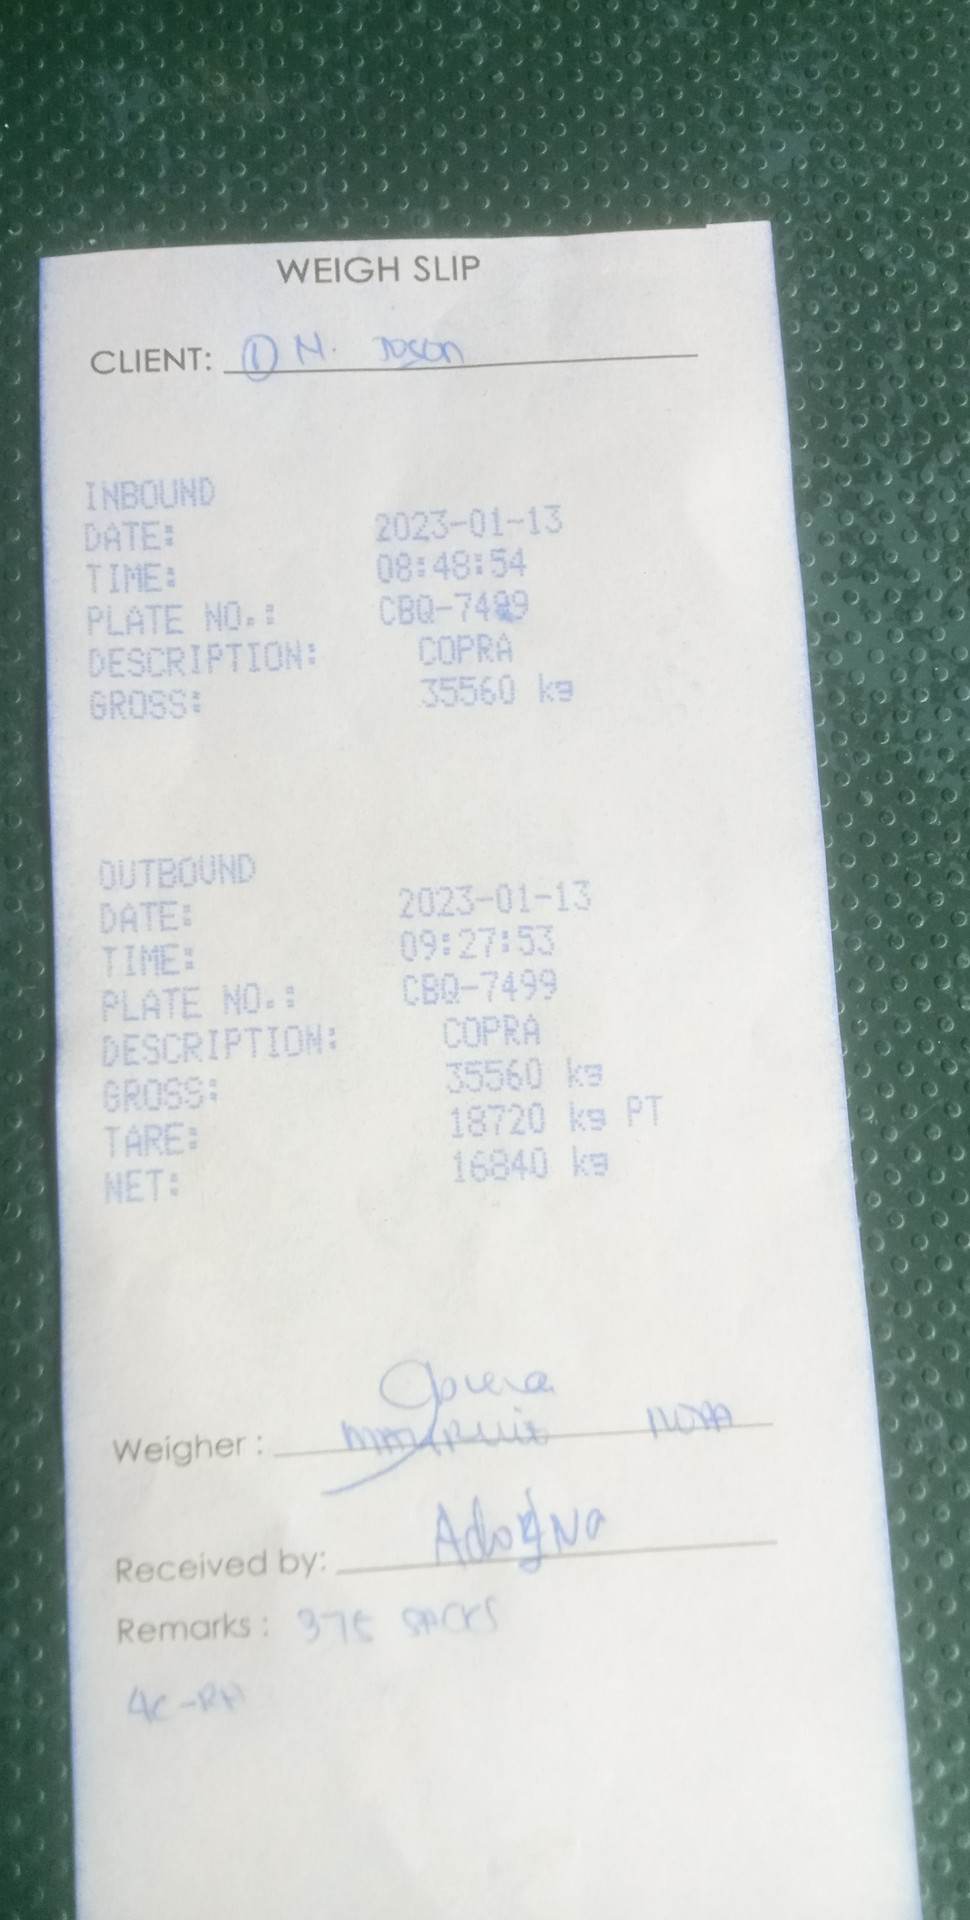 WEIGH SLIP
CLIENT: ① N. Joson
INBOUND
DATE: 2023-01-13
TIME: 08:48:54
PLATE NO.: CBQ-7499
DESCRIPTION: COPRA
GROSS: 35560 kg
OUTBOUND
DATE: 2023-01-13
TIME: 09:27:53
PLATE NO.: CBQ-7499
DESCRIPTION: COPRA
GROSS: 35560 kg
TARE: 18720 kg PT
NET: 16840 kg
Weigher :
Received by:
Remarks : 375 SACKS